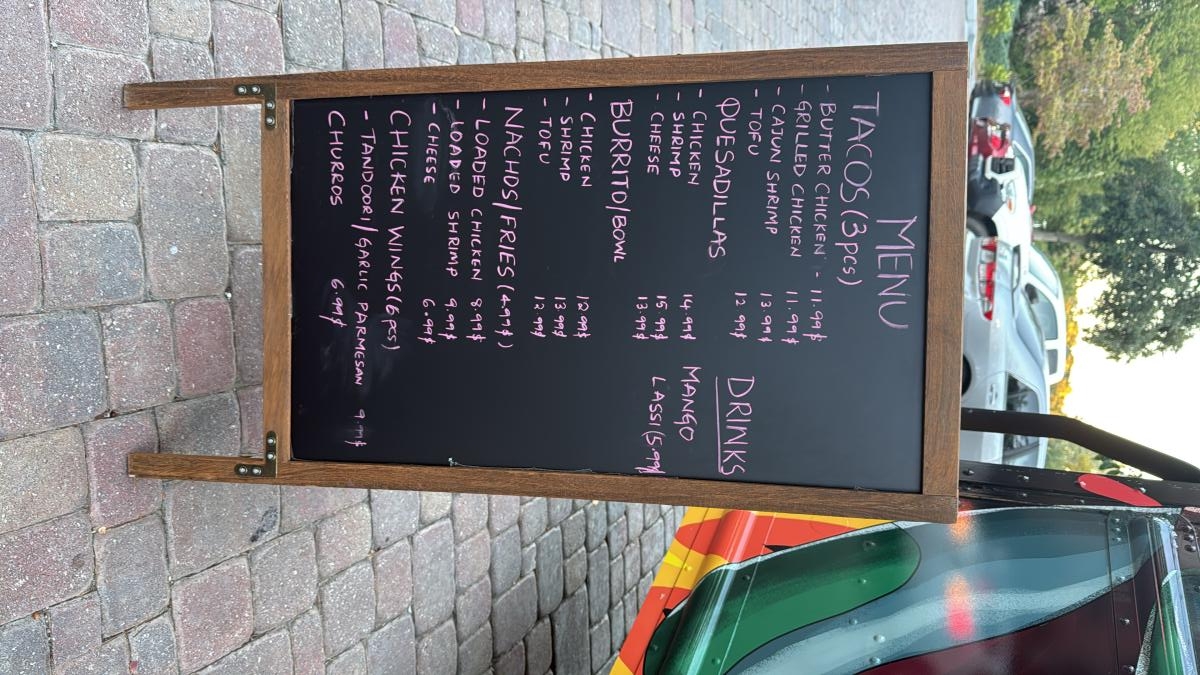 MENU
TACOS (3pcs)
- BUTTER CHICKEN - 11.99$
- GRILLED CHICKEN 11.99$
- CAJUN SHRIMP 13.99$
- TOFU 12.99$
QUESADILLAS
- CHICKEN 14.99$
- SHRIMP 15.99$
- CHEESE 13.99$
BURRITO/BOWL
- CHICKEN 12.99$
- SHRIMP 13.99$
- TOFU 12.99$
NACHOS/FRIES (4.99$)
- LOADED CHICKEN 8.99$
- LOADED SHRIMP 9.99$
- CHEESE 6.99$
CHICKEN WINGS (6pcs)
- TANDOORI/GARLIC PARMESAN 9.99$
CHURROS 6.99$
DRINKS
MANGO
LASSI (5.99$